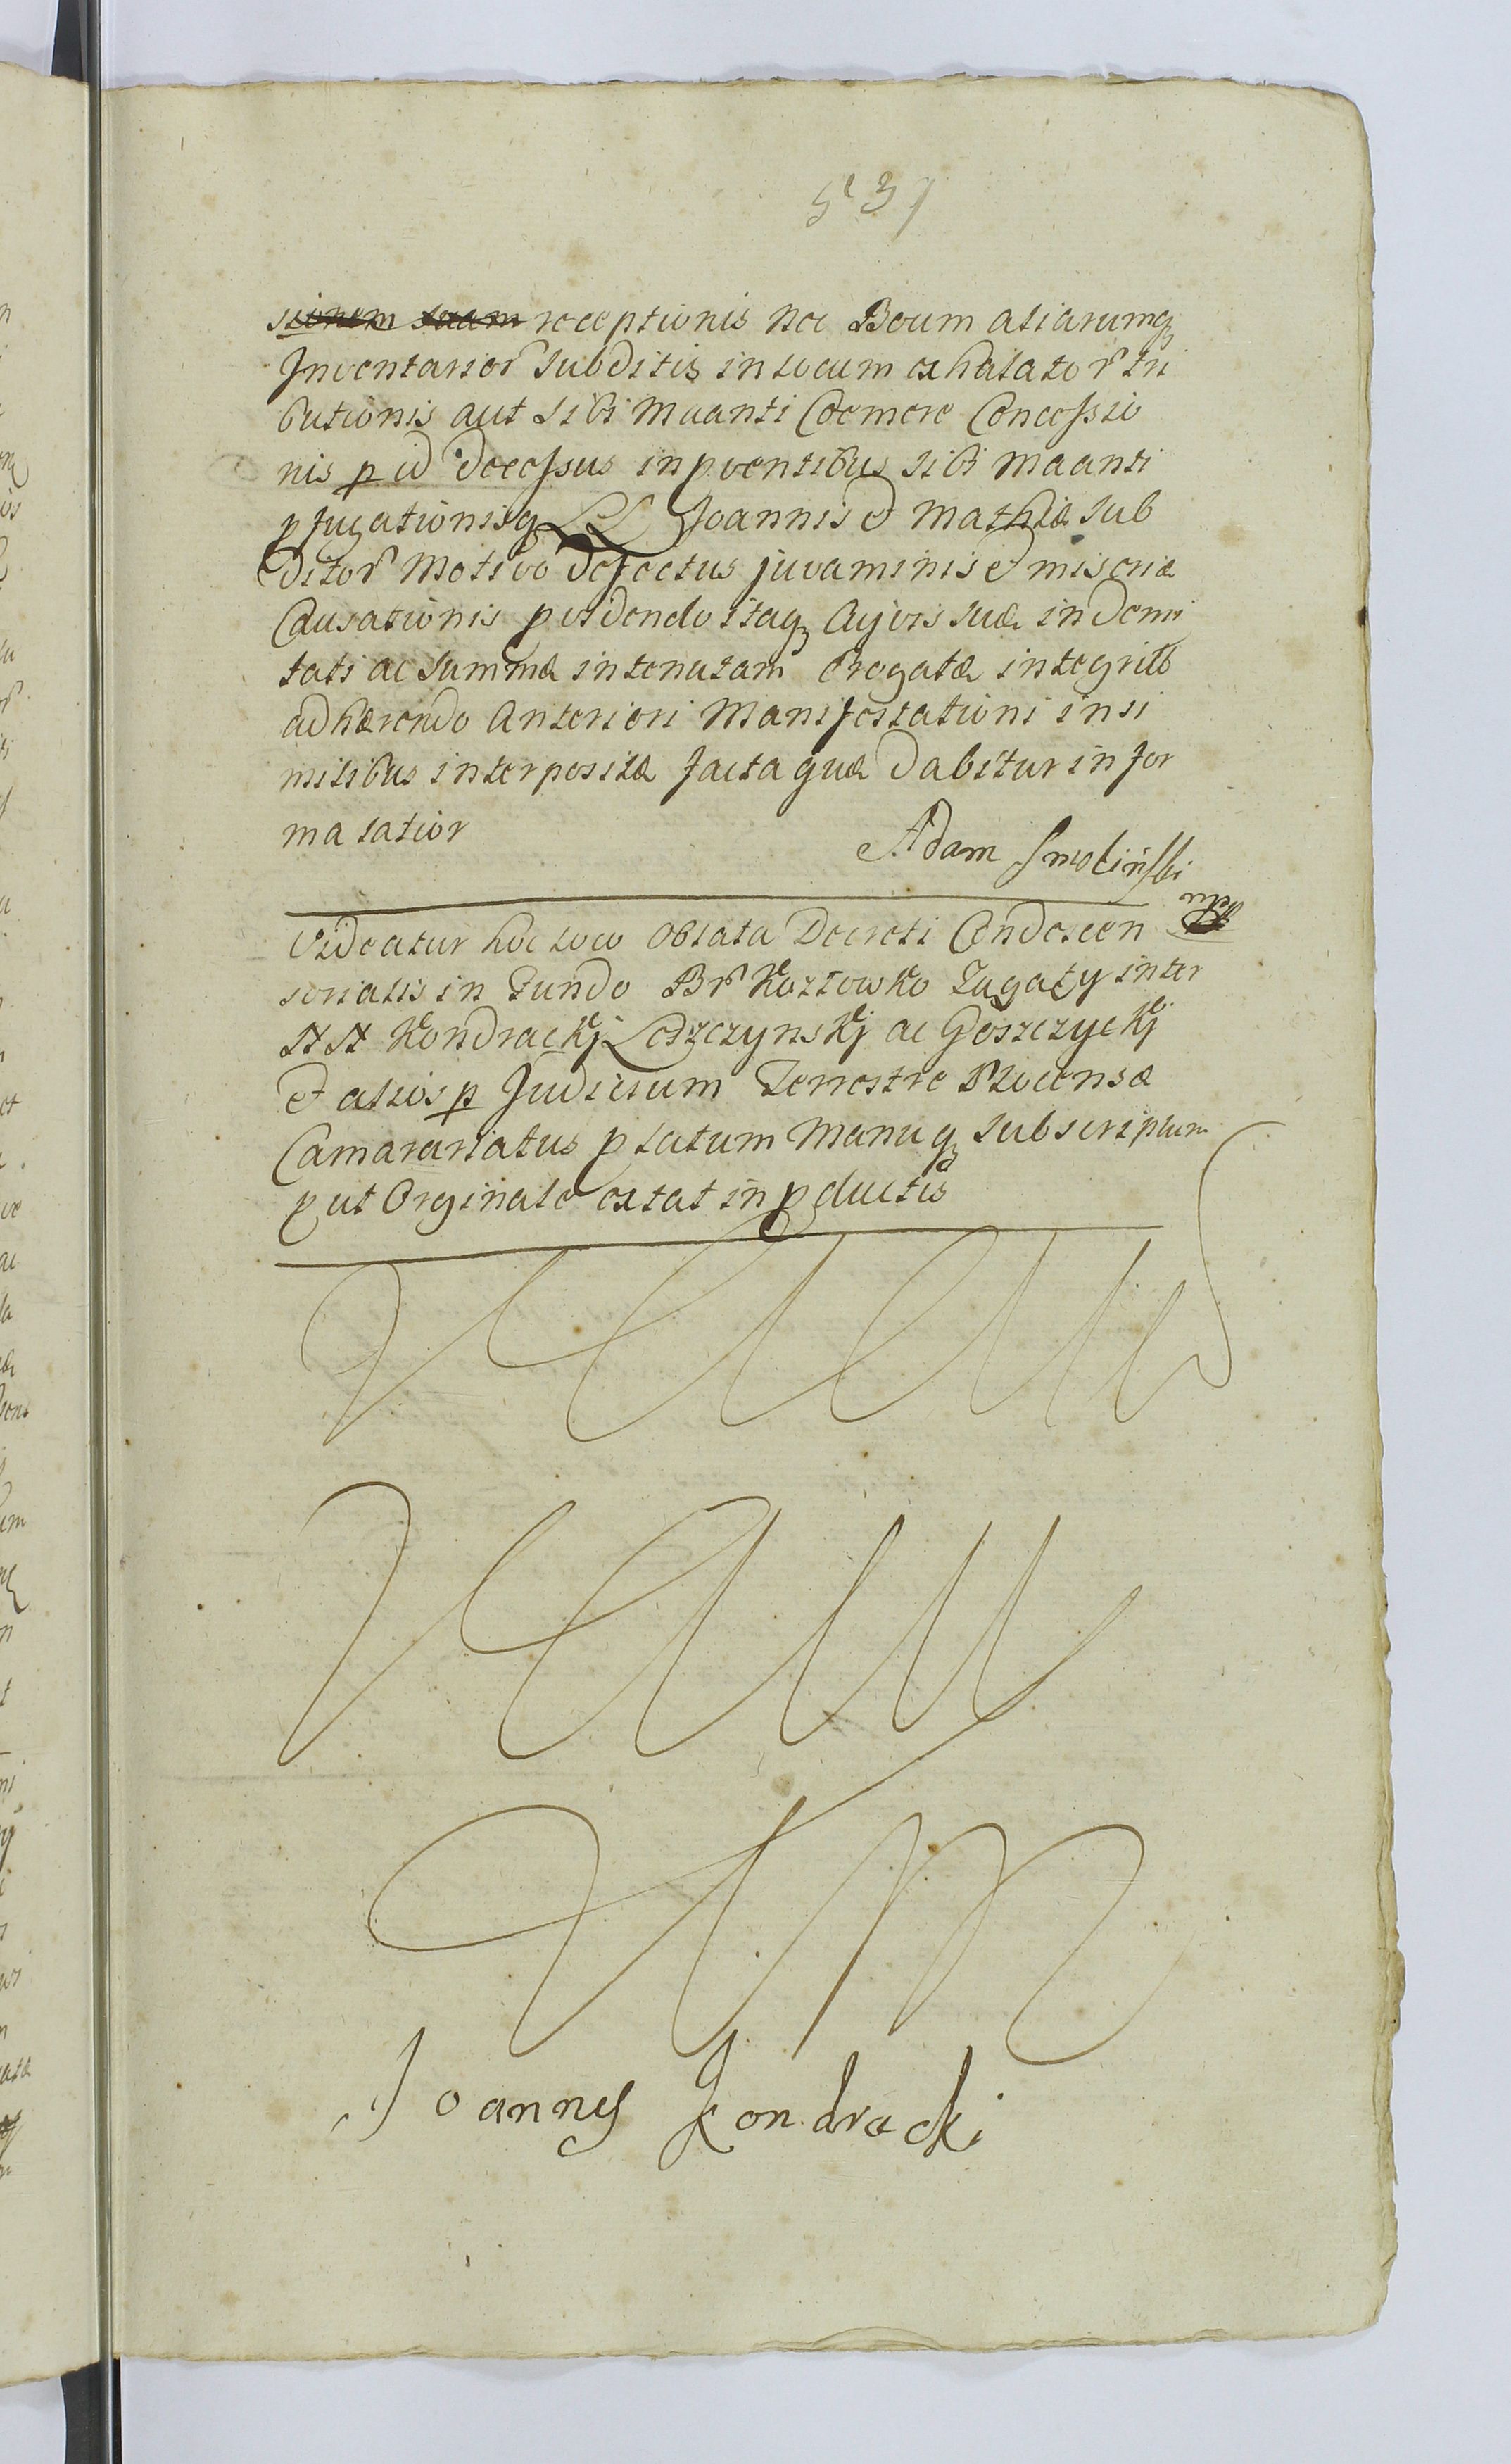 537
sionem suam receptionis nec Boum aliarumq
Inventarior subditis in locum exhalator tri
butionis aut sibi Maanti Coemere Concessio
nis p id decessus in pventibus sibi Maanti
pfugationisq LL Joannis et Mathiæ sub
ditor Motivo defectus juvaminis et miseriæ
Causationis pvidendo itaq Ajoris suæ indemni
tati ac summæ in tenutam Erogatæ integritti
adhærendo Anteriori Manifestationi in si
milibus interpositæ facta quæ dabitur in for
ma latior
Adam Smoliński
mpp
Videatur hoc loco Oblata Decreti Condescen
sorialis in Fundo Br Kozłowko Lugały inter
NN Kondrackj Leszczynskj ac Goszczyckj
et alios p Judicium Terrestre Plocense
Camerariatus platum Manuq subscriptum
put Orginale extat in pductis
Joannes Kondracki